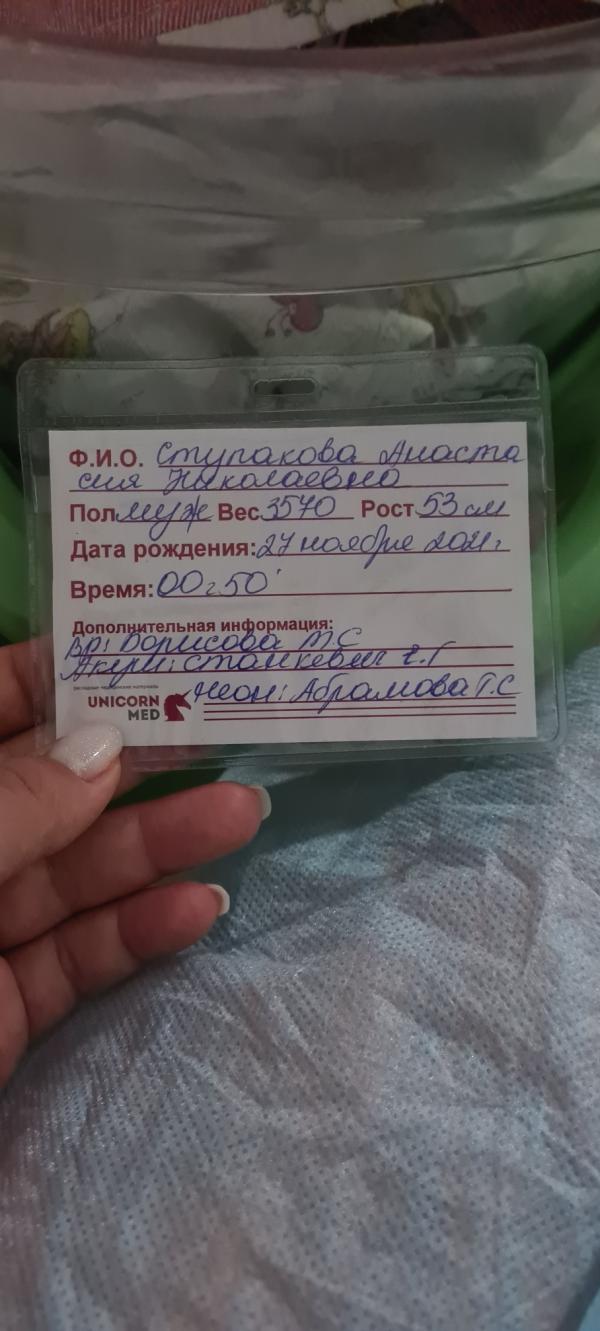 Ф.И.О. Ступакова Анаста
сия Николаевна
Пол муж Вес 3570 Рост 53 см
Дата рождения: 27 ноября 2021г.
Время: 00 г 50'
Дополнительная информация:
Вр: Борисова М.С
Акуш: Станкевич Г.Г
расходные медицинские материалы
Неон: Абрамова Т.С
UNICORN
MED